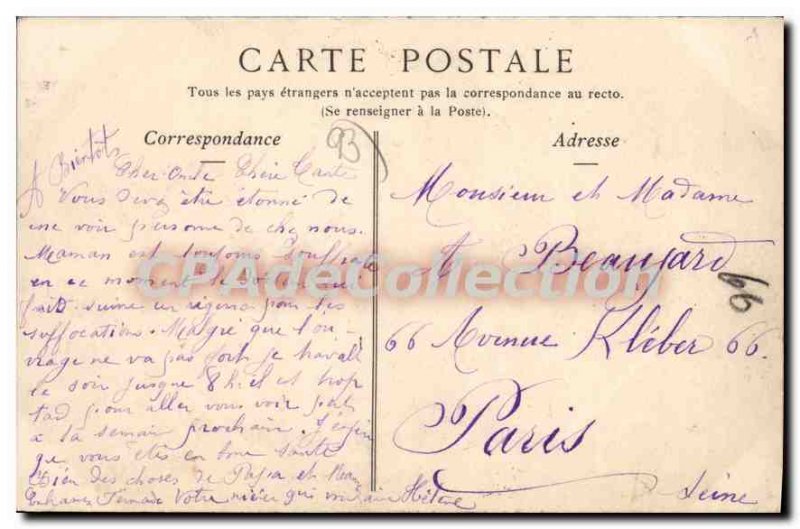 CARTE POSTALE
Tous les pays étrangers n'acceptent pas la correspondance au recto.
(Se renseigner à la Poste).
Correspondance
93
Adresse
A Bientôt
Cher Oncle Chère Tante
Vous devez être étonné de
ne voir personne de chez nous.
Maman est toujours souffrante
en ce moment le docteur lui
fait suivre un régime pour les
suffocations. Malgré que l'ou-
vrage ne va pas fort je travail
le soir jusque 8h. il est trop
tard pour aller vous voir peut
a la semain prochain. J'espère
que vous êtes en bonne santé
bien des choses de Papa et Maman
Votre nièce qui vous aime Hélène
Monsieur et Madame
A Beaujard
66 Avenue Kléber 66.
Paris
Seine
99
CPAdeCollection